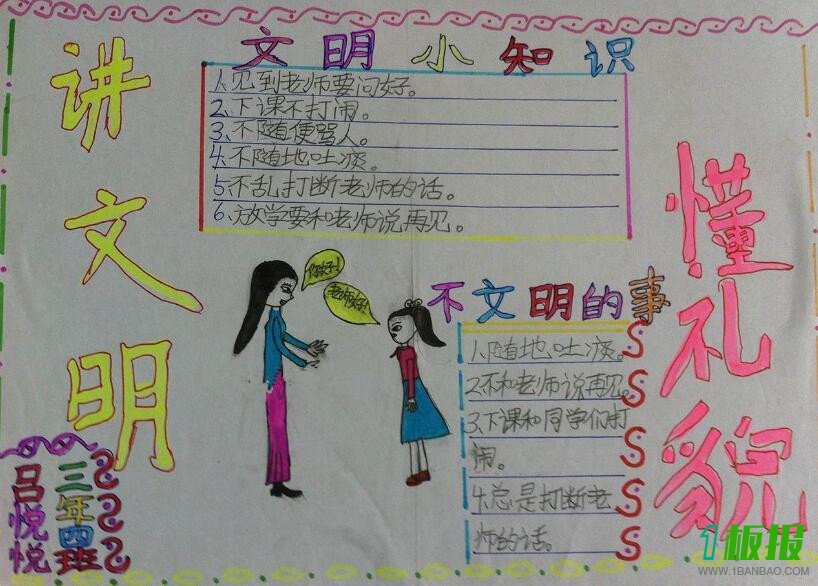 讲文明
懂礼貌
文明小知识
1、见到老师要问好。
2、下课不打闹。
3、不随便骂人。
4、不随地吐痰。
5、不乱打断老师的话。
6、放学要和老师说再见。
你好！
老师好！
不文明的事
1、随地吐痰。
2、不和老师说再见。
3、下课和同学们打
闹。
4、总是打断老
师的话。
三年四班
吕悦悦
1板报
WWW.1BANBAO.COM